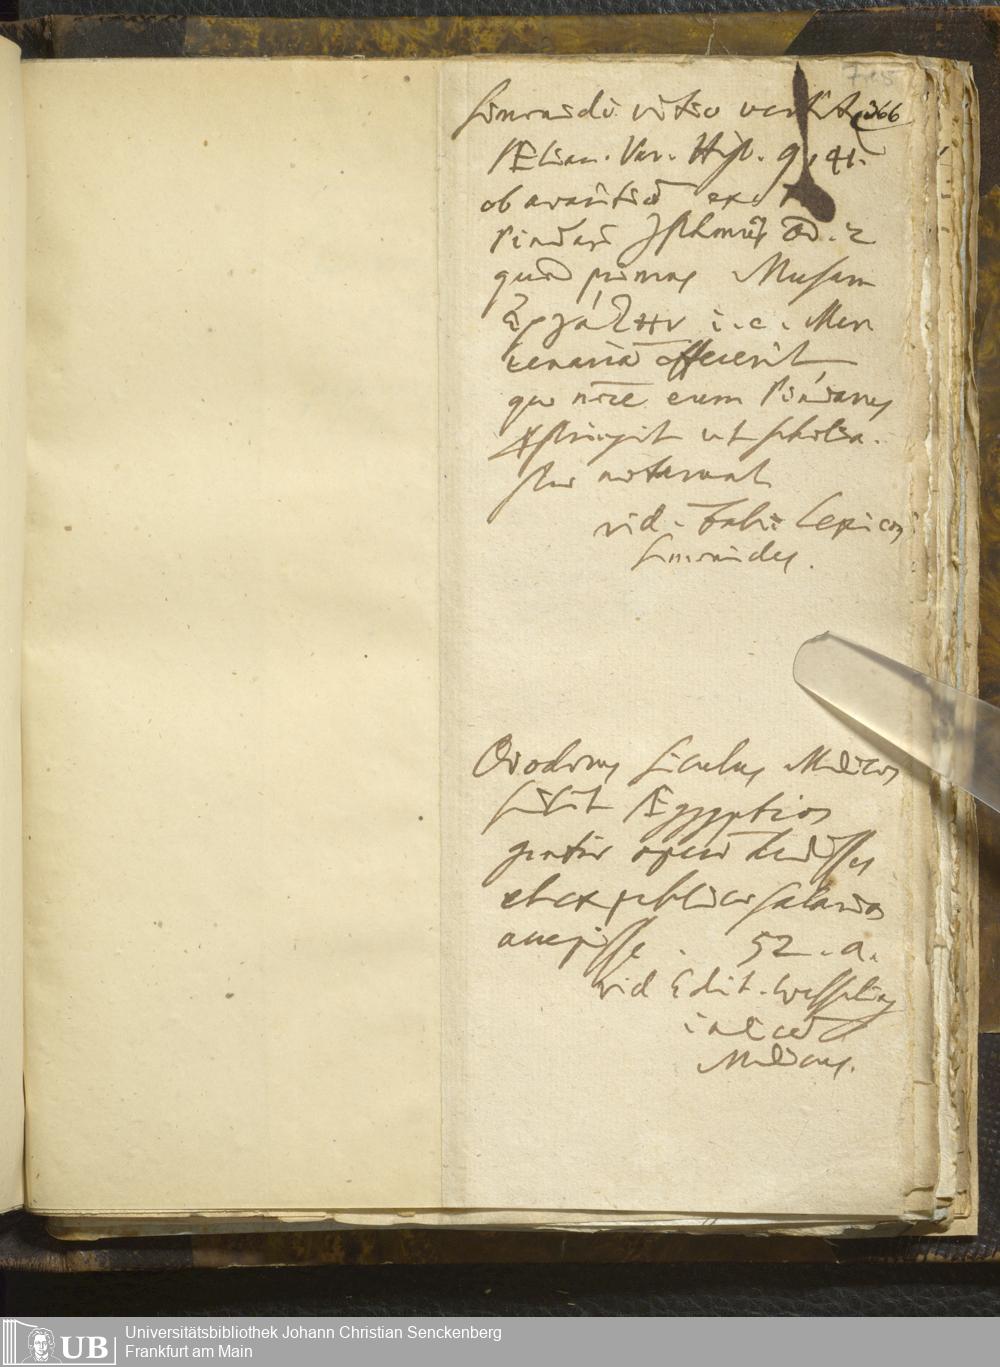 366
Simonidi vitio vertit
Ælian. Var. Hist. 9, 41.
ob avaritiā ex
Pindari Isthmiis Od. 2
quod primus Musam
ἐργάτην i. e. Mer
cenariā effecerit
quo noīe eum Pindarus
pstringit ut scholia-
stes notarunt
vid. Fabri Lexicon
Simonides.
Diodorus Siculus Medicos
Ægyptios
gratis operā
et ex publico salarios
accepisse. 52. a.
vid Edit. Wesseling
indicē
Medicus.
UB
Universitätsbibliothek Johann Christian Senckenberg
Frankfurt am Main